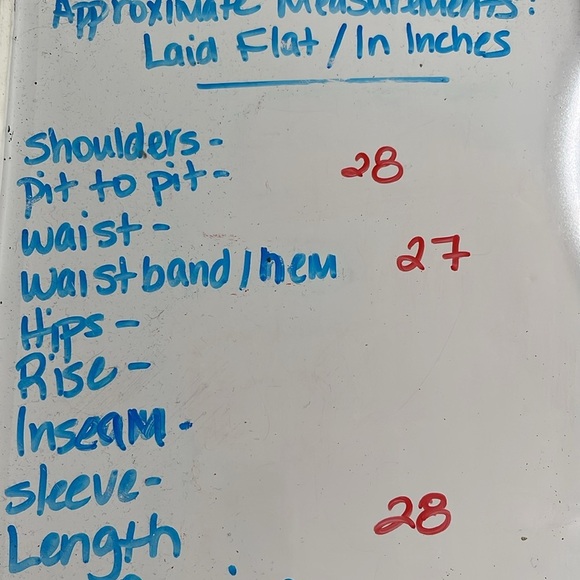 Approximate Measurements:
Laid Flat / In Inches
Shoulders -
pit to pit - 28
waist -
waistband / hem 27
Hips -
Rise -
Inseam -
sleeve -
Length 28